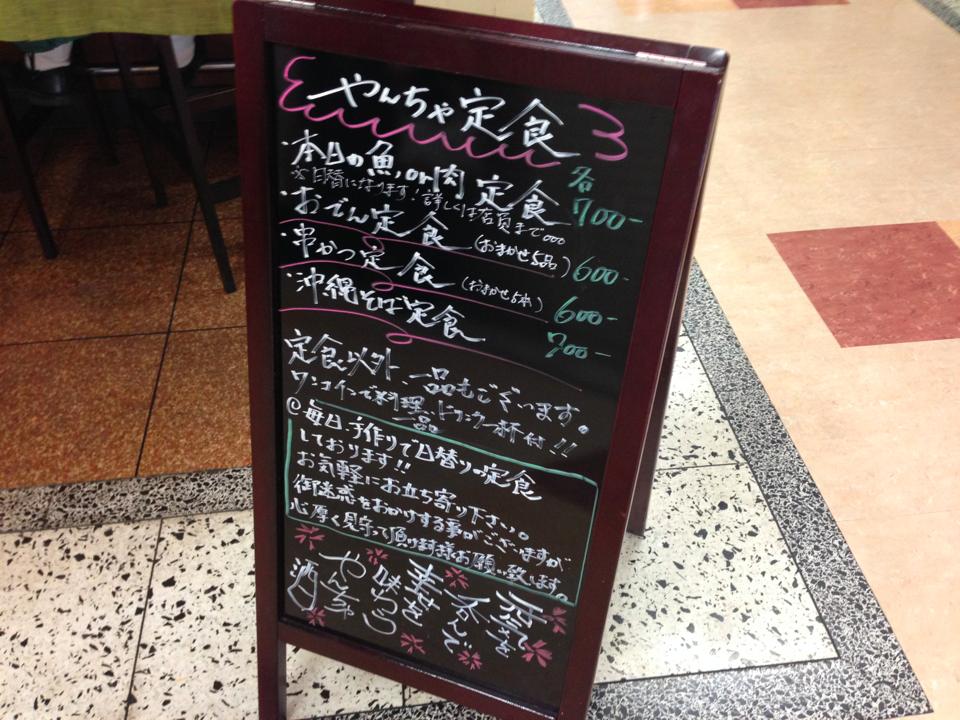 やんちゃ定食
・本日の魚、or肉 定食 各700-
※日替になります！詳しくは店員まで。。。
・おでん定食 (おまかせ5品) 600-
・串かつ定食 (おまかせ5本) 600-
・沖縄そば定食 700-
定食以外、一品もございます。
ワンコインで料理一品、ドリンク一杯付!!
◎毎日、手作りで日替りの定食
しております!!
お気軽にお立ち寄り下さい。
御迷惑をおかけする事がございますが
心厚く見守って頂けます様お願い致します。
呑んで
幸せを
味わう
やんちゃ
酒